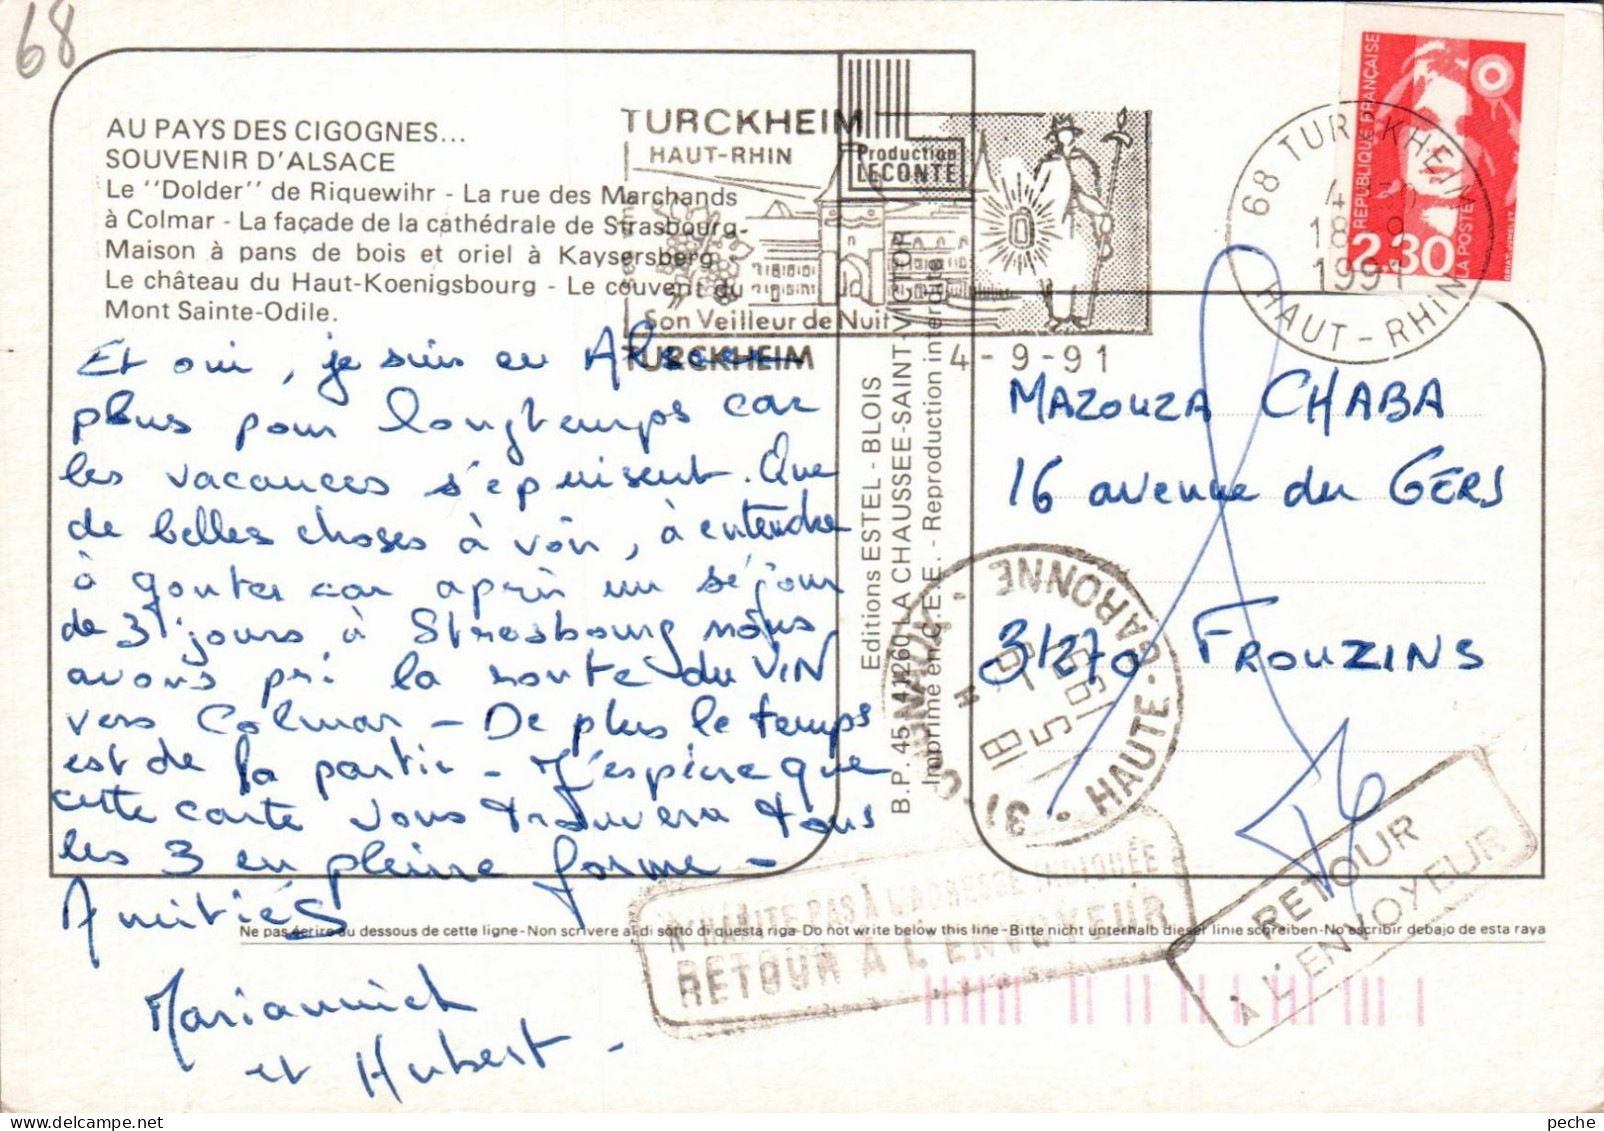 68
AU PAYS DES CIGOGNES...
SOUVENIR D'ALSACE
Le ''Dolder'' de Riquewihr - La rue des Marchands
à Colmar - La façade de la cathédrale de Strasbourg -
Maison à pans de bois et oriel à Kaysersberg
Le château du Haut-Koenigsbourg - Le couvent du
Mont Sainte-Odile.
TURCKHEIM
HAUT-RHIN
Son Veilleur de Nuit
TURCKHEIM
4-9-91
Production
LECONTE
RÉPUBLIQUE FRANÇAISE
2,30
LA POSTE
68 TURCKHEIM
18
9
1991
HAUT-RHIN
Et oui, je suis en Alsace
plus pour longtemps car
les vacances s'épuisent. Que
de belles choses à voir, à entendre
à gouter car après un séjour
de 3 jours à Strasbourg nous
avons pri la route du VIN
vers Colmar - De plus le temps
est de la partie - J'espère que
cette carte vous trouvera tous
les 3 en pleine forme -
Amitiés
Mariannick
et Hubert -
Editions ESTEL - BLOIS
B.P. 45 - 41260 LA CHAUSSEE-SAINT-VICTOR
Imprimé en C.E.E. - Reproduction interdite
MAZOUZA CHABA
16 avenue du GERS
31270 FROUZINS
31-CUGNAUX
HAUTE-GARONNE
N'HABITE PAS À L'ADRESSE INDIQUÉE
RETOUR À L'ENVOYEUR
RETOUR
À L'ENVOYEUR
Ne pas écrire au dessous de cette ligne-Non scrivere al di sotto di questa riga-Do not write below this line-Bitte nicht unterhalb dieser linie schreiben-No escribir debajo de esta raya
peche